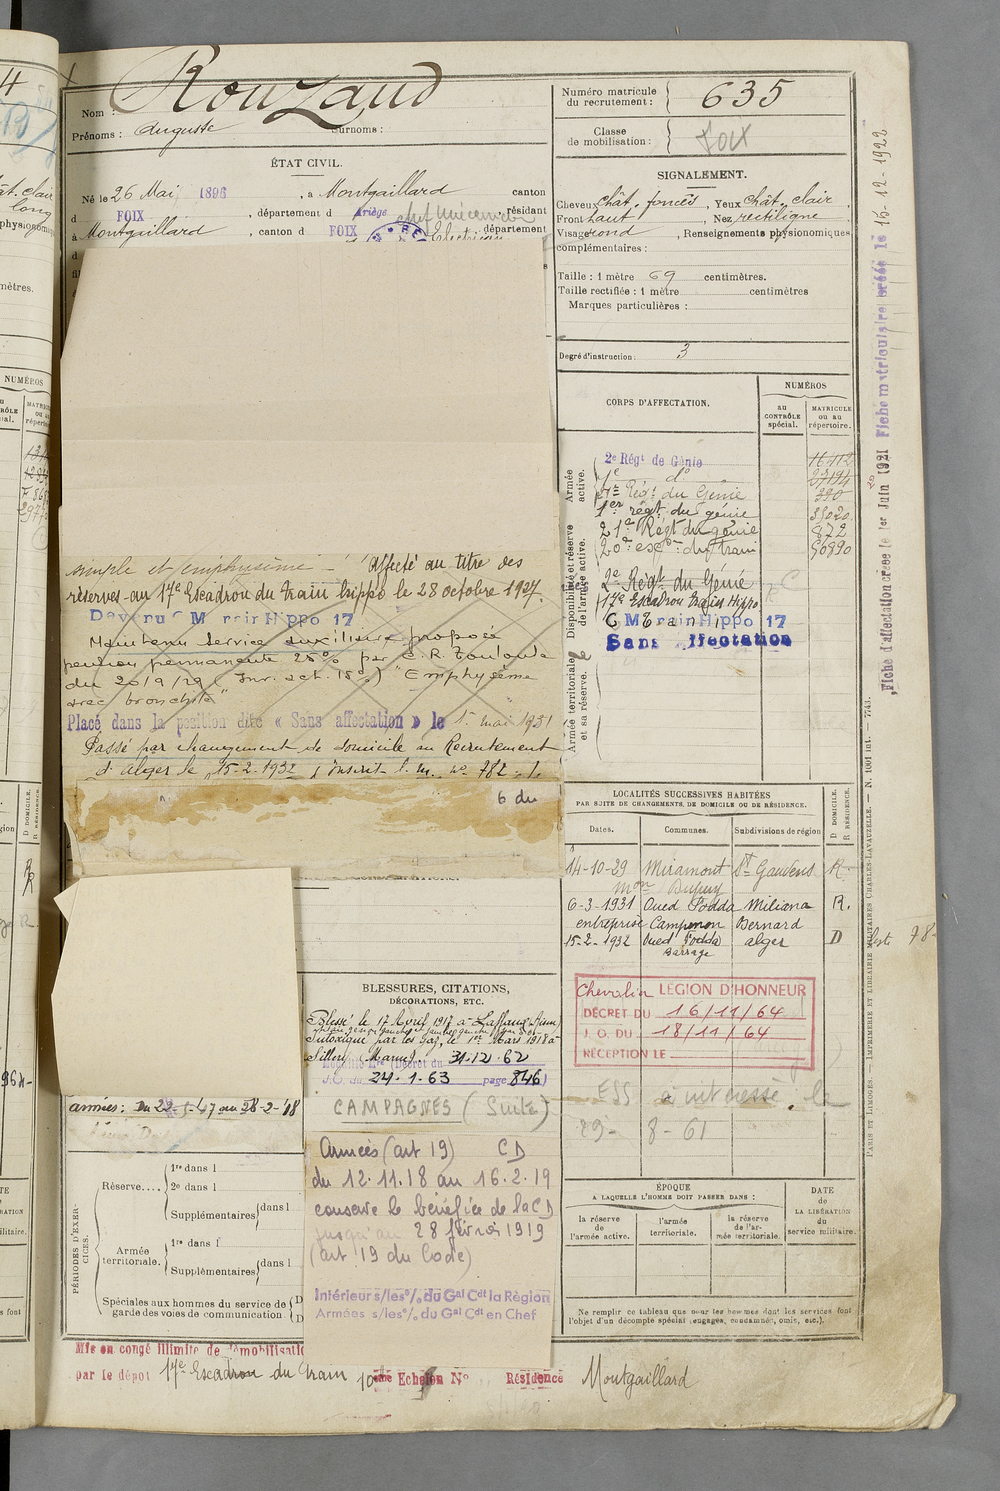 Rouzaud
Nom :
Prénoms : Auguste Surnoms :
ÉTAT CIVIL.
Né le 26 Mai 1896, à Montgaillard canton
d FOIX, département d Ariège, résidant
à Montgaillard, canton d FOIX, département
simple et emphysème — affecté au titre des
réserves au 17e Escadron du train hippo le 28 octobre 1927.
Devenu C M Train Hippo 17
Maintenu service auxiliaire proposé
pension permanente 25% par C.R. Toulouse
du 20/9/29 (Inv. ach. 15%) "Emphysème
avec bronchite"
Placé dans la position dite « Sans affectation » le 1er mai 1931
Passé par changement de domicile au Recrutement
d'Alger le 15-2-1932, inscrit l. m. no 782
6 du
armées : Du 22-5-47 au 28-2-48
PÉRIODES D'EXERCICES.
Réserve....
1re dans l
2e dans l
Supplémentaires dans l
Armée territoriale.
1re dans l
Supplémentaires dans l
Spéciales aux hommes du service de
garde des voies de communication
Mis en congé illimité de démobilisati
par le dépôt 17e Escadron du train 10ème Echelon No Résidence Montgaillard
BLESSURES, CITATIONS,
DÉCORATIONS, ETC.
Blessé le 17 Avril 1917 à Laffaux Aisne
Intoxiqué par les gaz, le 1er Mars 1918 à
Sillery (Marne). Décret du 31.12.62
J.O. du 24.1.63 page 846)
CAMPAGNES (Suite)
Armées (art 19) CD
du 12.11.18 au 16.2.19
conserve le bénéfice de la CD
jusqu'au 28 février 1919
(art 19 du Code)
Intérieur s/les o/. du Gal Cdt la Région
Armées s/les o/. du Gal Cdt en Chef
Numéro matricule
du recrutement : 635
Classe
de mobilisation :
Foix
SIGNALEMENT.
Cheveux chât. foncés, Yeux chât. clair,
Front haut, Nez rectiligne
Visage rond, Renseignements physionomiques
complémentaires :
Taille : 1 mètre 69 centimètres.
Taille rectifiée : 1 mètre centimètres
Marques particulières :
Degré d'instruction : 3
CORPS D'AFFECTATION.
NUMÉROS
au
CONTRÔLE
spécial.
MATRICULE
ou au
répertoire.
Armée active.
2e Régt de Génie 16112
1e do 27194
Régt du Génie
1er régt du génie 35020
21e Régt du génie 872
20e escon du train 50990
Disponibilité et réserve de l'armée active.
2e Régt du Génie
17e Escadron train Hippo
C M Train Hippo 17
Sans affectation
Armée territoriale et sa réserve.
LOCALITÉS SUCCESSIVES HABITÉES
PAR SUITE DE CHANGEMENTS DE DOMICILE OU DE RÉSIDENCE.
Dates. Communes. Subdivisions de région
D DOMICILE.
R RÉSIDENCE.
14-10-29 Miramont St Gaudens R.
mon Dupuy
6-3-1931 Oued Fodda Miliana R.
entreprise Campenon Bernard
15-2-1932 Oued Fodda alger D
Barrage
Chevalier LÉGION D'HONNEUR
DÉCRET DU 16/11/64
J. O. DU 18/11/64
RÉCEPTION LE
ESS à intéressé le
29- 8-61
ÉPOQUE
A LAQUELLE L'HOMME DOIT PASSER DANS :
la réserve
de
l'armée active.
l'armée
territoriale.
la réserve
de l'ar-
mée territoriale.
DATE
de
LA LIBÉRATION
du
service militaire.
Ne remplir ce tableau que pour les hommes dont les services font
l'objet d'un décompte spécial (engagés, condamnés, omis, etc.).
Fiche d'affectation créée le 1er Juin 1921 Fiche matriculaire créée le 15-12-1922
PARIS ET LIMOGES. — IMPRIMERIE ET LIBRAIRIE MILITAIRES CHARLES-LAVAUZELLE. — N. 1001 int. — 7743.